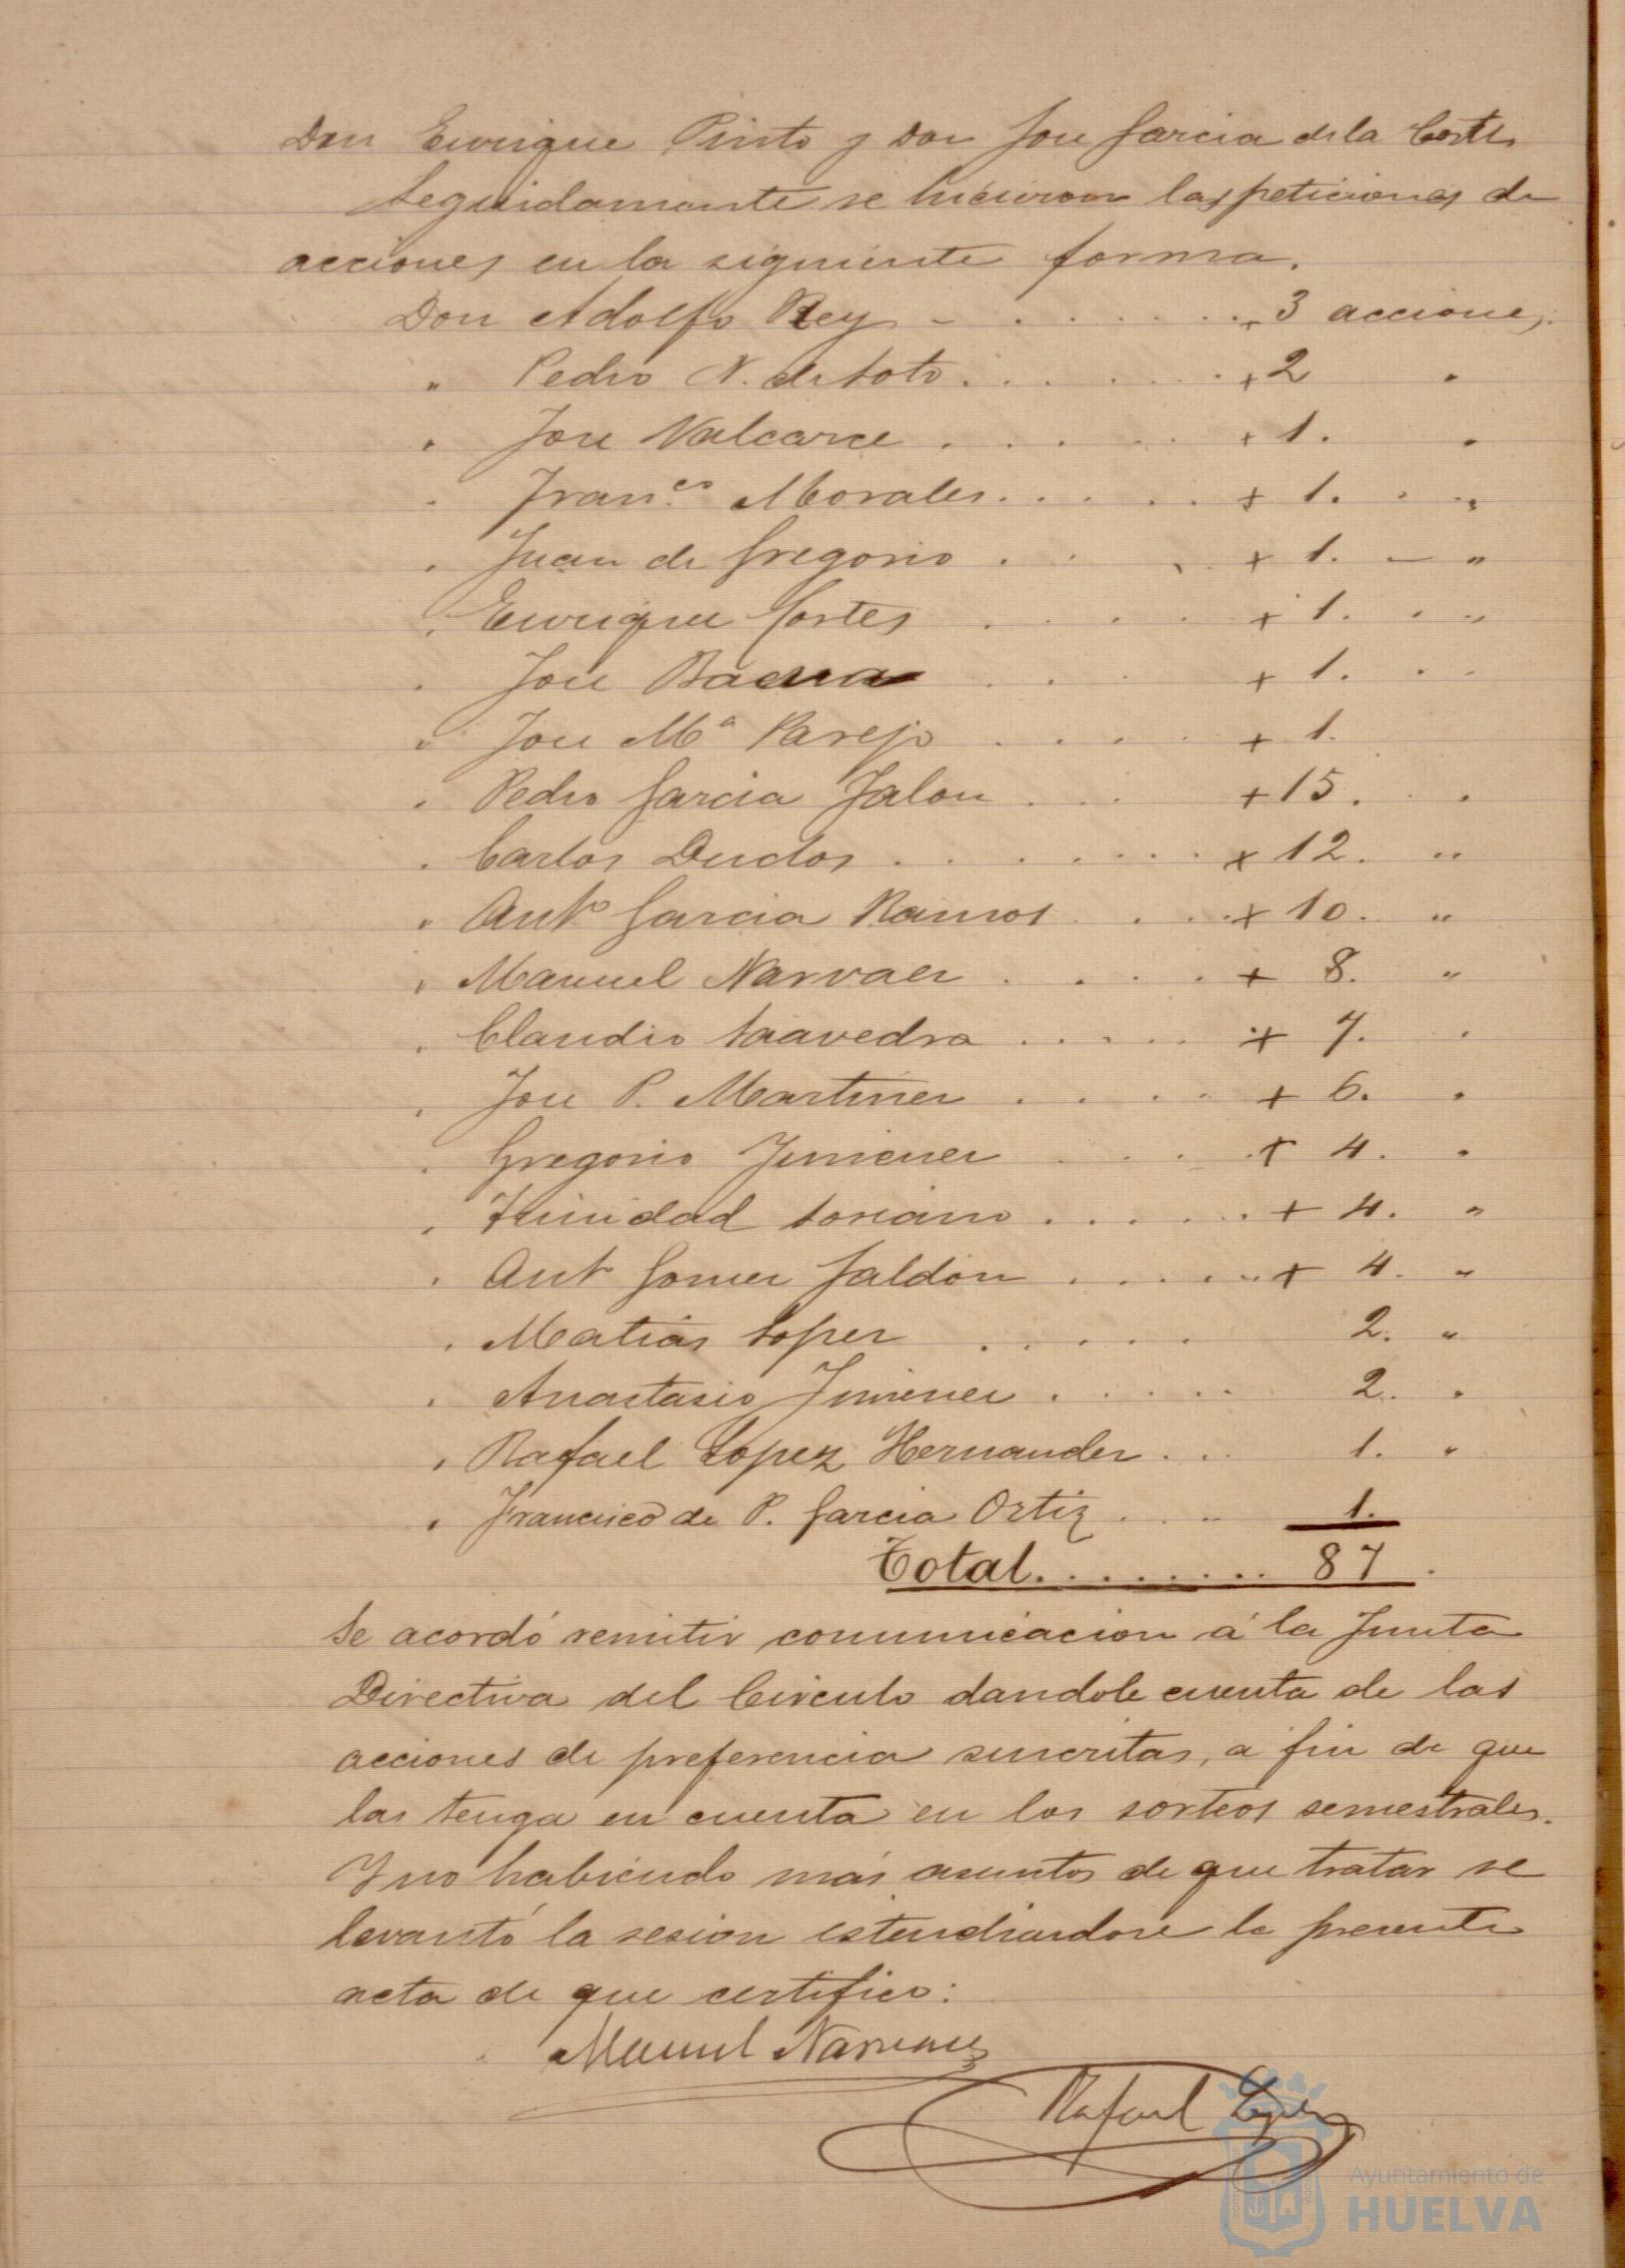 Don Enrique Pinto y Don Jose Garcia de la Corte.
Seguidamente se hicieron las peticiones de
acciones en la siguiente forma.
Don Adolfo Rey - . . . . . . + 3 acciones.
" Pedro N. de Soto . . . . . . + 2 "
" Jose Valcarce . . . . . + 1. "
" Fran.co Morales . . . . . + 1. . "
" Juan de Gregorio . . . + 1. - "
" Enrique Cortes . . . . + 1. . "
" Jose Baena . . . + 1. . "
" Jose Mª Parejo . . . . + 1.
" Pedro Garcia Jalon . . . + 15. . "
" Carlos Duclos . . . . . . + 12. "
" Antº Garcia Ramos . . . + 10. "
" Manuel Narvaez . . . . + 8. "
" Claudio Saavedra . . . . . + 7. "
" Jose P. Martinez . . . . . + 6. "
" Gregorio Jimenez . . . . + 4. "
" Trinidad Soriano . . . . . + 4. "
" Antº Gomez Jaldón . . . . . + 4. "
" Matias Lopez . . . . . 2. "
" Anastasio Jimenez . . . . . 2. "
" Rafael Lopez Hernandez . . . 1. "
" Francisco de P. Garcia Ortiz . . . 1.
Total. . . . . . . . . 87.
Se acordó remitir comunicacion á la Junta
Directiva del Circulo dandole cuenta de las
acciones de preferencia suscritas, a fin de que
las tenga en cuenta en los sorteos semestrales.
Y no habiendo más asuntos de que tratar se
levantó la sesion estendiendose la presente
acta de que certifico:
Manuel Narvaez
Rafael Lopez
Ayuntamiento de
HUELVA